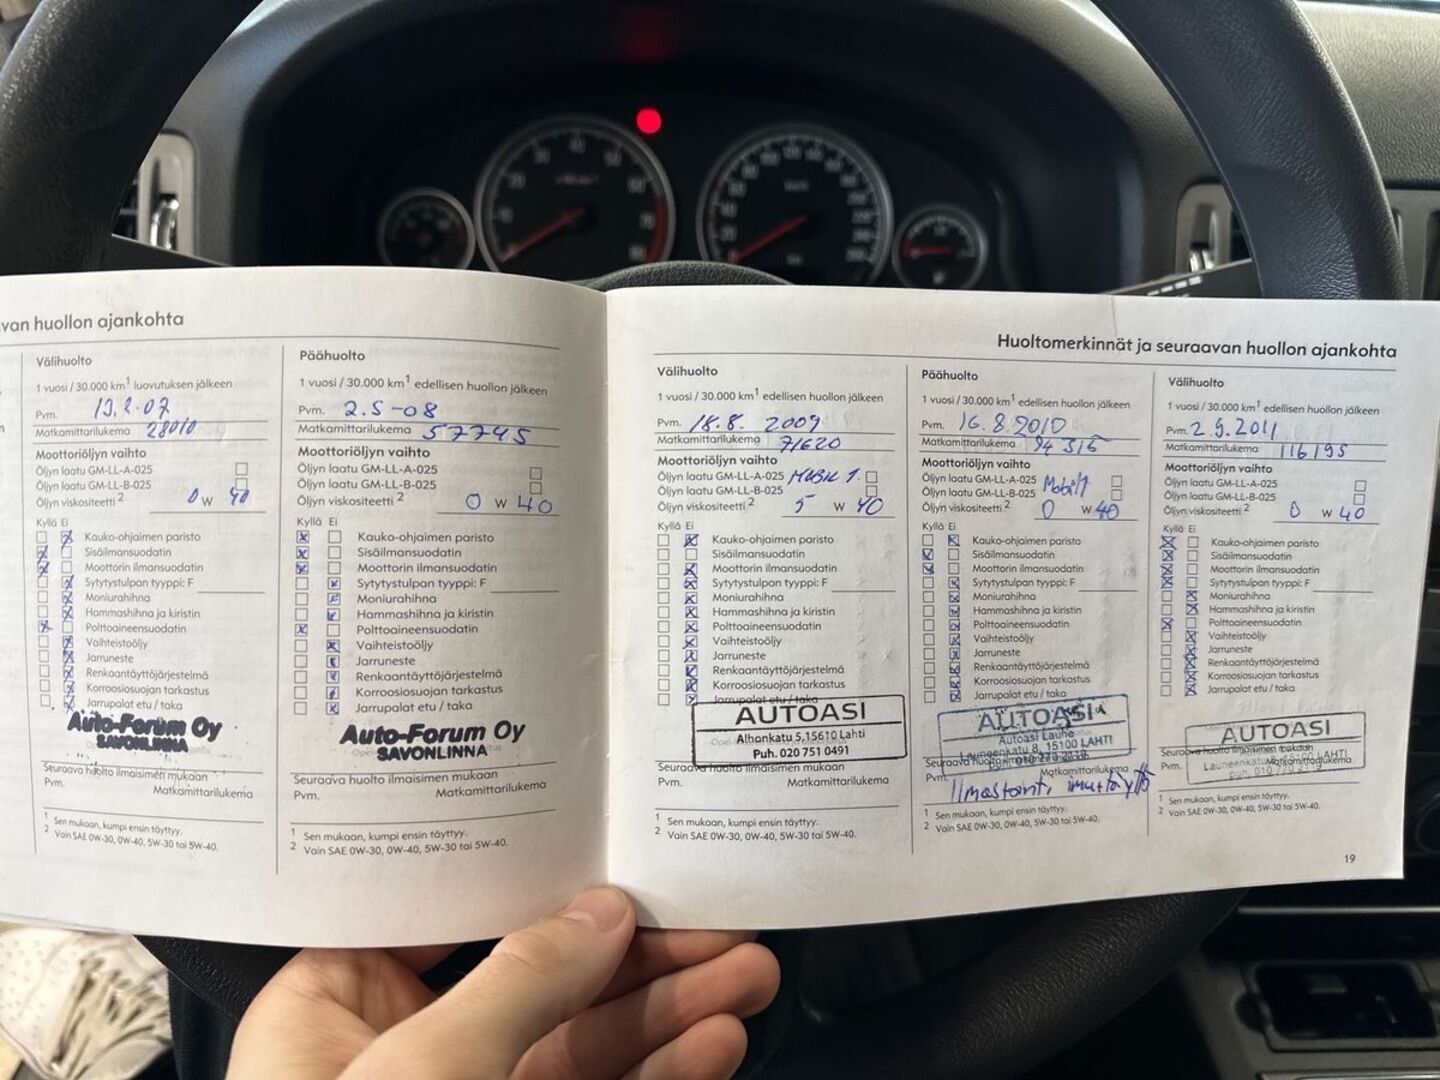 van huollon ajankohta
Välihuolto
1 vuosi / 30.000 km1 luovutuksen jälkeen
Pvm. 13.2.07
Matkamittarilukema 28010
Moottoriöljyn vaihto
Öljyn laatu GM-LL-A-025
Öljyn laatu GM-LL-B-025
Öljyn viskositeetti 2 0 W 40
Kyllä Ei
Kauko-ohjaimen paristo
Sisäilmansuodatin
Moottorin ilmansuodatin
Sytytystulpan tyyppi: F
Moniurahihna
Hammashihna ja kiristin
Polttoaineensuodatin
Vaihteistoöljy
Jarruneste
Renkaantäyttöjärjestelmä
Korroosiosuojan tarkastus
Jarrupalat etu / taka
Auto-Forum Oy
SAVONLINNA
Seuraava huolto ilmaisimen mukaan
Pvm. Matkamittarilukema
1 Sen mukaan, kumpi ensin täyttyy.
2 Vain SAE 0W-30, 0W-40, 5W-30 tai 5W-40.
Päähuolto
1 vuosi / 30.000 km1 edellisen huollon jälkeen
Pvm. 2.5-08
Matkamittarilukema 57745
Moottoriöljyn vaihto
Öljyn laatu GM-LL-A-025
Öljyn laatu GM-LL-B-025
Öljyn viskositeetti 2 0 W 40
Kyllä Ei
Kauko-ohjaimen paristo
Sisäilmansuodatin
Moottorin ilmansuodatin
Sytytystulpan tyyppi: F
Moniurahihna
Hammashihna ja kiristin
Polttoaineensuodatin
Vaihteistoöljy
Jarruneste
Renkaantäyttöjärjestelmä
Korroosiosuojan tarkastus
Jarrupalat etu / taka
Auto-Forum Oy
SAVONLINNA
Seuraava huolto ilmaisimen mukaan
Pvm. Matkamittarilukema
1 Sen mukaan, kumpi ensin täyttyy.
2 Vain SAE 0W-30, 0W-40, 5W-30 tai 5W-40.
Huoltomerkinnät ja seuraavan huollon ajankohta
Välihuolto
1 vuosi / 30.000 km1 edellisen huollon jälkeen
Pvm. 18.8. 2009
Matkamittarilukema 71620
Moottoriöljyn vaihto
Öljyn laatu GM-LL-A-025 MOBIL 1.
Öljyn laatu GM-LL-B-025
Öljyn viskositeetti 2 5 W 40
Kyllä Ei
Kauko-ohjaimen paristo
Sisäilmansuodatin
Moottorin ilmansuodatin
Sytytystulpan tyyppi: F
Moniurahihna
Hammashihna ja kiristin
Polttoaineensuodatin
Vaihteistoöljy
Jarruneste
Renkaantäyttöjärjestelmä
Korroosiosuojan tarkastus
Jarrupalat etu / taka
AUTOASI
Alhonkatu 5,15610 Lahti
Puh. 020 751 0491
Seuraava huolto ilmaisimen mukaan
Pvm. Matkamittarilukema
1 Sen mukaan, kumpi ensin täyttyy.
2 Vain SAE 0W-30, 0W-40, 5W-30 tai 5W-40.
Päähuolto
1 vuosi / 30.000 km1 edellisen huollon jälkeen
Pvm. 16.8.2010
Matkamittarilukema 94315
Moottoriöljyn vaihto
Öljyn laatu GM-LL-A-025 Mobil1
Öljyn laatu GM-LL-B-025
Öljyn viskositeetti 2 0 W 40
Kyllä Ei
Kauko-ohjaimen paristo
Sisäilmansuodatin
Moottorin ilmansuodatin
Sytytystulpan tyyppi: F
Moniurahihna
Hammashihna ja kiristin
Polttoaineensuodatin
Vaihteistoöljy
Jarruneste
Renkaantäyttöjärjestelmä
Korroosiosuojan tarkastus
Jarrupalat etu / taka
AUTOASI
Autoasi Laune
Launeenkatu 8, 15100 LAHTI
Seuraava huolto ilmaisimen mukaan
Pvm. Matkamittarilukema
Ilmastoint.
1 Sen mukaan, kumpi ensin täyttyy.
2 Vain SAE 0W-30, 0W-40, 5W-30 tai 5W-40.
Välihuolto
1 vuosi / 30.000 km1 edellisen huollon jälkeen
Pvm. 2.9.2011
Matkamittarilukema 116195
Moottoriöljyn vaihto
Öljyn laatu GM-LL-A-025
Öljyn laatu GM-LL-B-025
Öljyn viskositeetti 2 0 W 40
Kyllä Ei
Kauko-ohjaimen paristo
Sisäilmansuodatin
Moottorin ilmansuodatin
Sytytystulpan tyyppi: F
Moniurahihna
Hammashihna ja kiristin
Polttoaineensuodatin
Vaihteistoöljy
Jarruneste
Renkaantäyttöjärjestelmä
Korroosiosuojan tarkastus
Jarrupalat etu / taka
AUTOASI
Seuraava huolto ilmaisimen mukaan
Pvm. Matkamittarilukema
1 Sen mukaan, kumpi ensin täyttyy.
2 Vain SAE 0W-30, 0W-40, 5W-30 tai 5W-40.
19